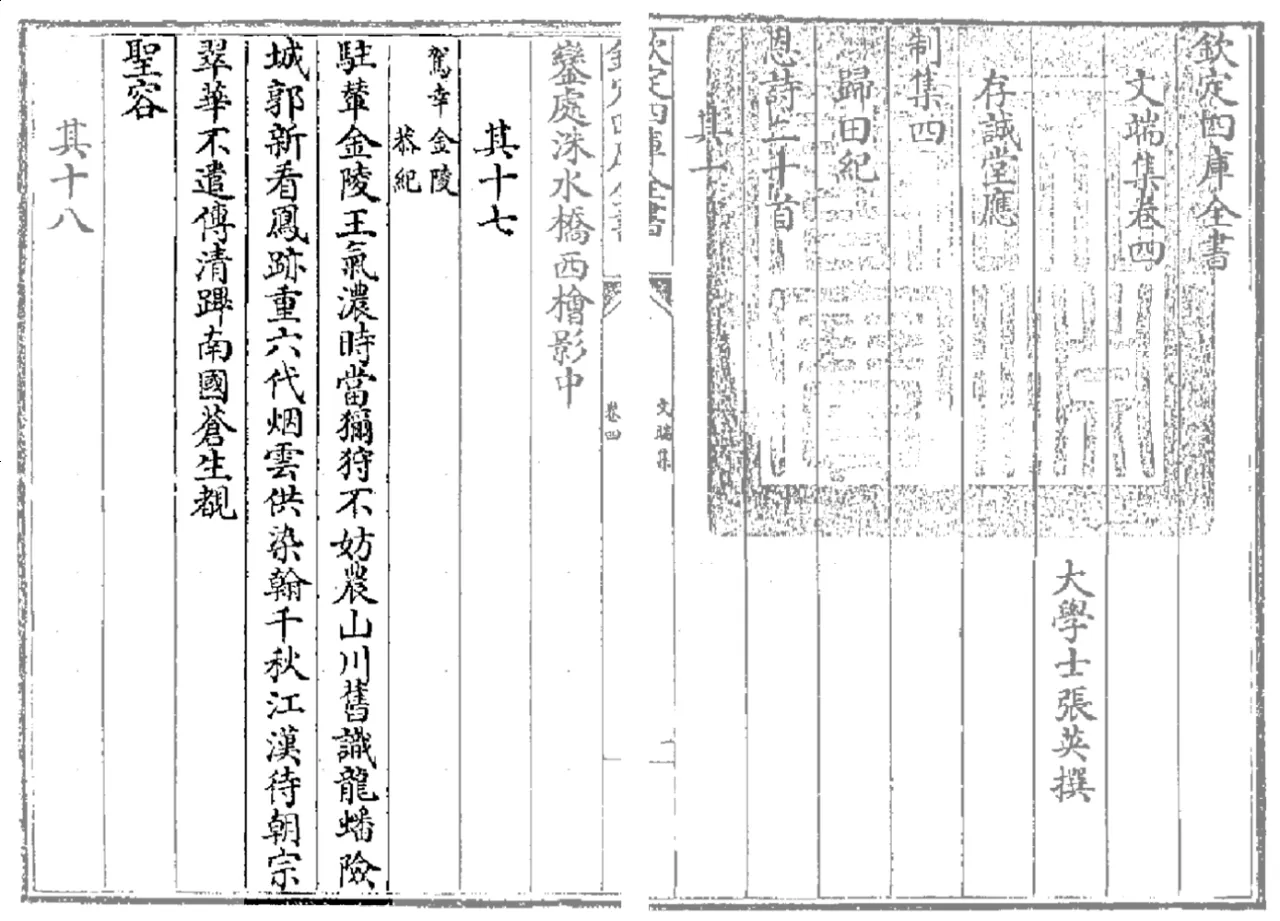 欽定四庫全書
文端集卷四
大學士張英撰
存誠堂應
制集四
歸田紀
恩詩二十首
其十
文端集
卷四
鑾處洙水橋西檜影中
其十七
駕幸金陵
恭紀
駐輦金陵王氣濃時當獮狩不妨農山川舊識龍蟠險
城郭新看鳳跡重六代烟雲供染翰千秋江漢待朝宗
翠華不遣傳清蹕南國蒼生覩
聖容
其十八